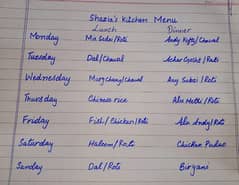 Shazia's Kitchen Menu
Lunch Dinner
Monday Mix Sabzi/Roti Andy Kofty/Chawal
Tuesday Dal/Chawal Achar Gosht/Roti
Wednesday Murg Chany/Chawal Any Sabzi/Roti
Thursday Chinese rice Alu Methi/Roti
Friday Fish/Chicken/Roti Alu Andy/Roti
Saturday Haleem/Roti Chicken Pulao
Sunday Dal/Roti Biryani